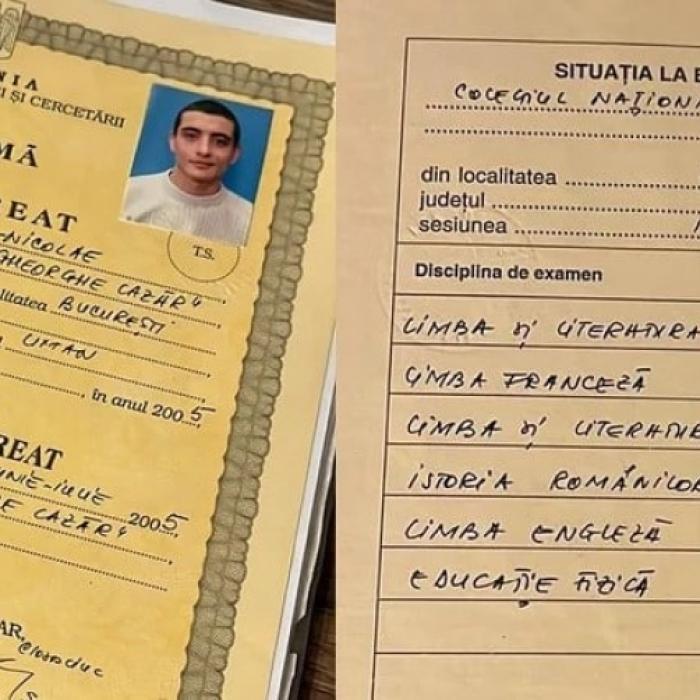 NIA
I ȘI CERCETĂRII
MĂ
REAT
NICOLAE
GHEORGHE LAZĂR"
litatea BUCUREȘTI
UMAN
, în anul 2005
REAT
NIE-IULIE 2005
GHE LAZĂR"
AR,
T.S.
SITUAȚIA LA E
COLEGIUL NAȚIONA
din localitatea
județul
sesiunea
Disciplina de examen
LIMBA ȘI LITERATURA
LIMBA FRANCEZĂ
LIMBA ȘI LITERATUR
ISTORIA ROMÂNILOR
LIMBA ENGLEZĂ
EDUCAȚIE FIZICĂ